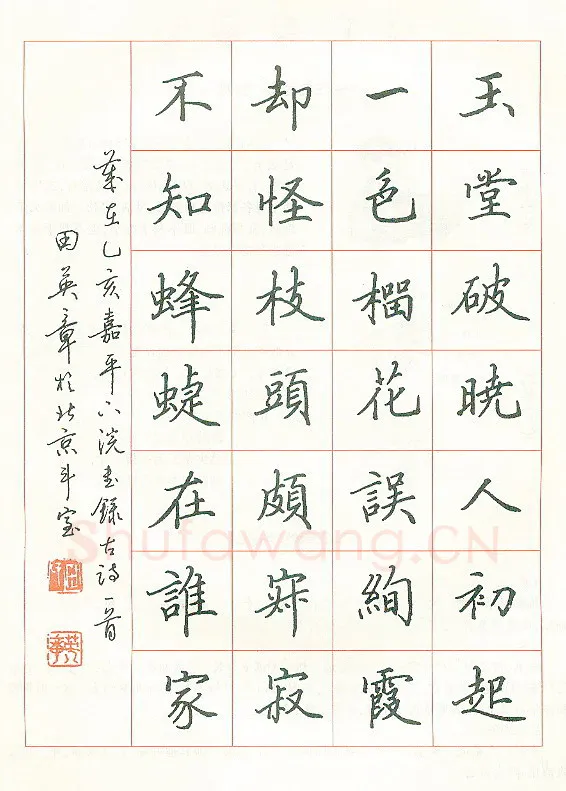 玉堂破暁人初起
一色榴花誤絢霞
却怪枝頭頗寂
不知蜂蜨在誰家
歲在乙亥嘉平下浣書錄古詩一首
田英章於北京斗室
Shufawang.CN